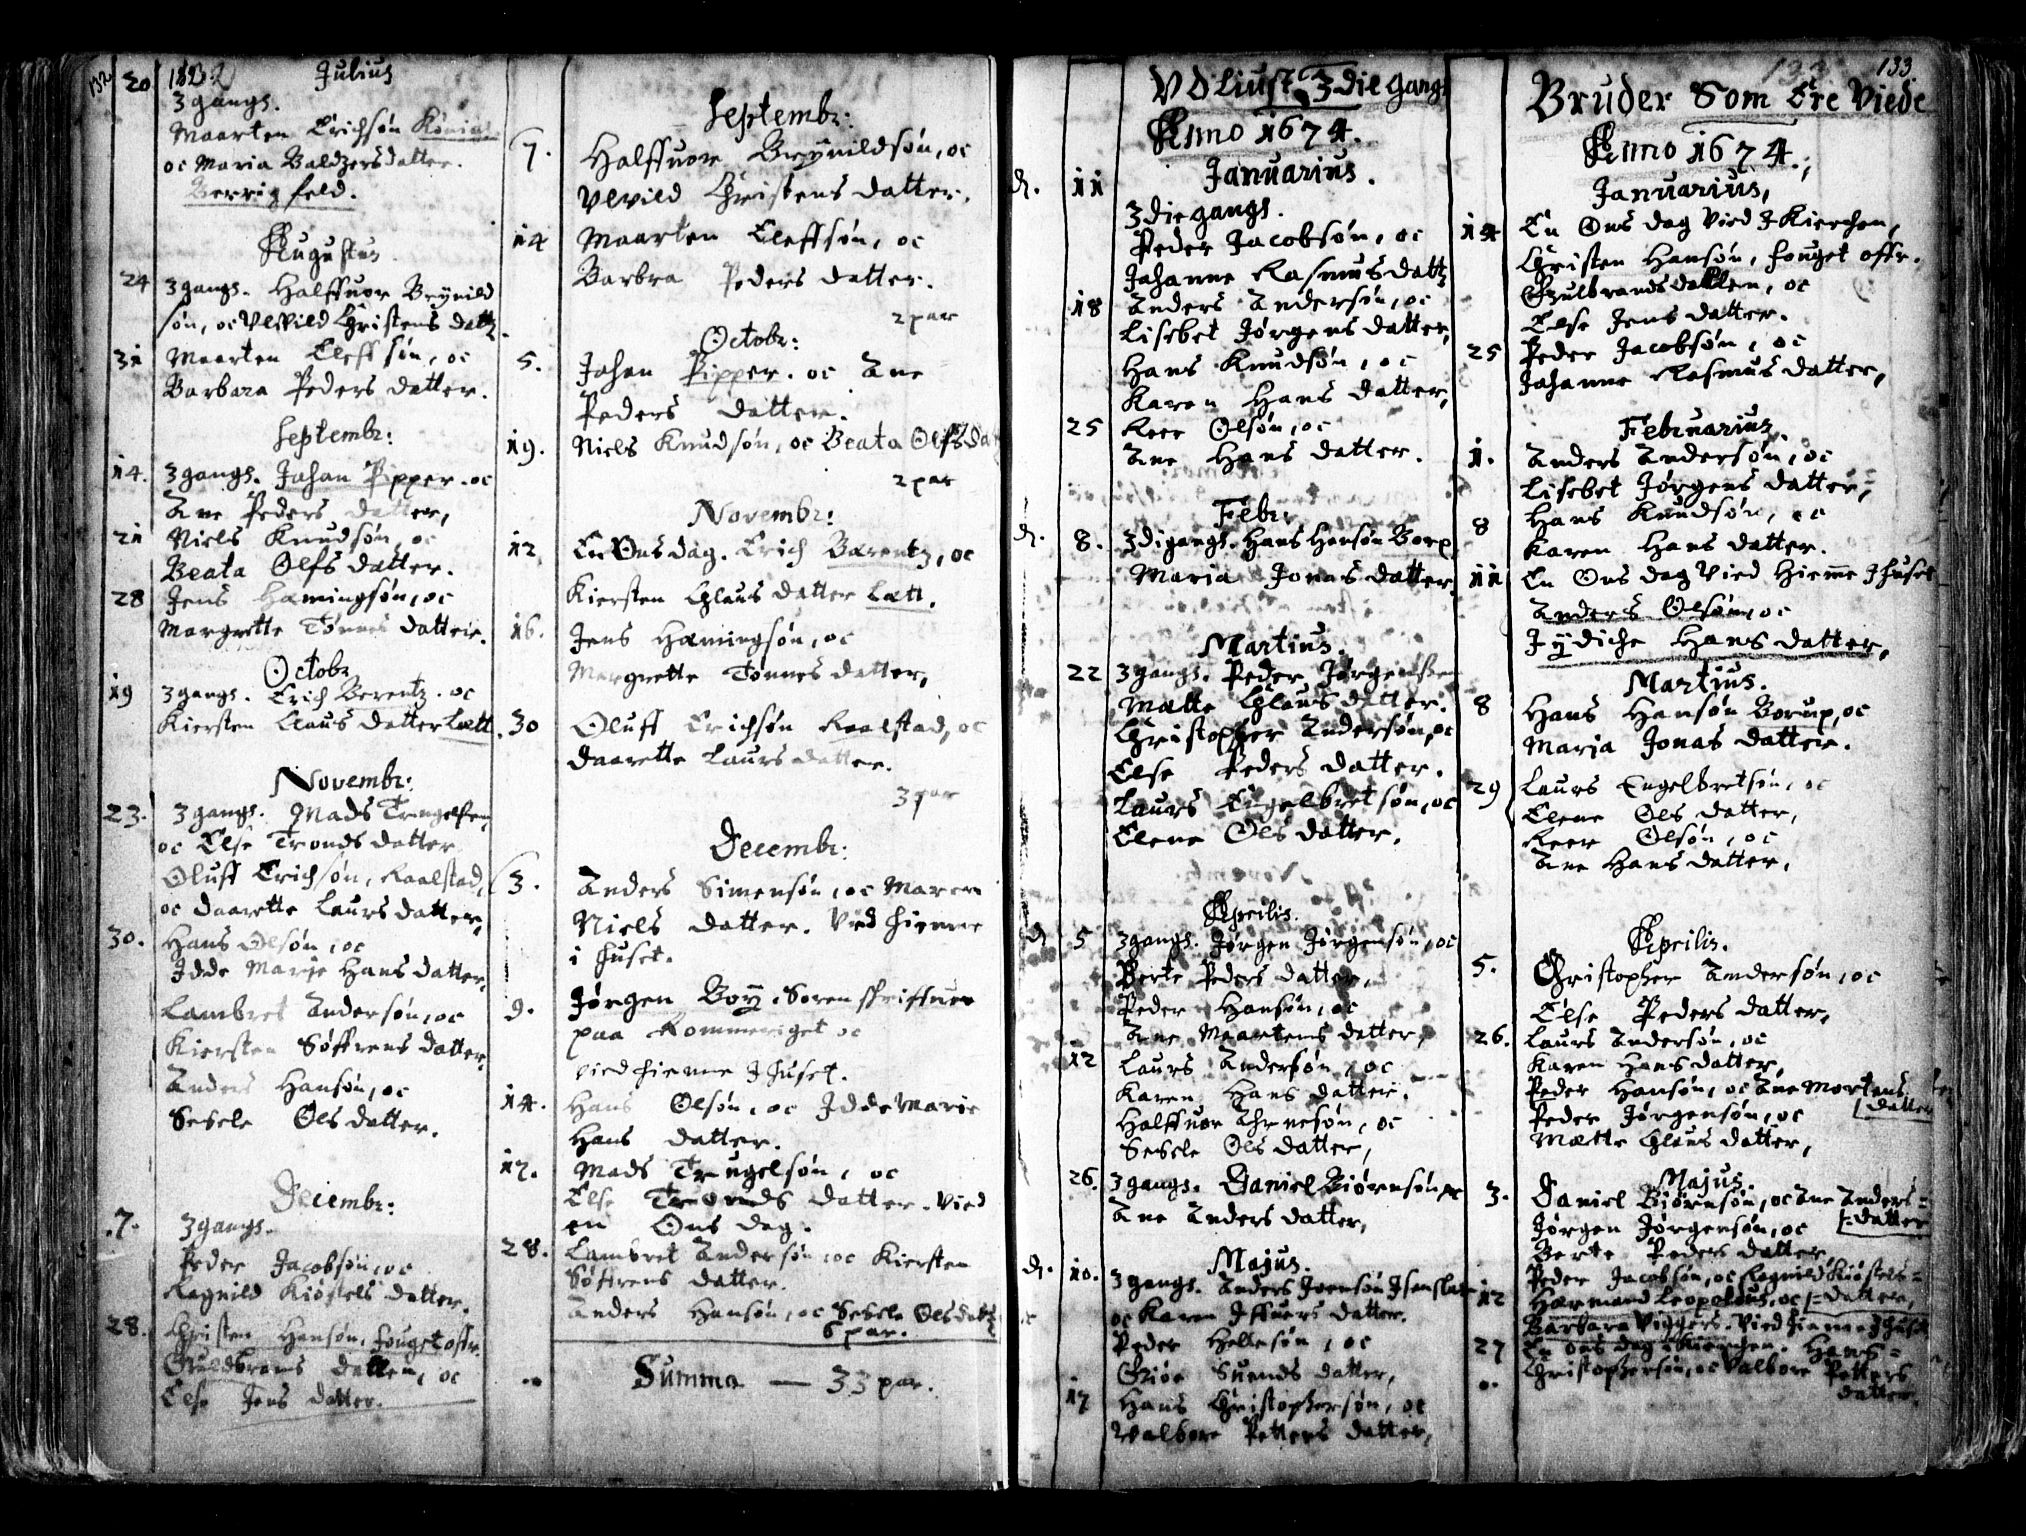 132
20
Julius
3 gangs.
Maarten Erichsøn
oc Maria Baldzersdatter.
Berrigfeld.
Augustus
24 3 gangs. Halffuor Brynild
søn, oc Vlvild Christens dattr
31 Maarten Eleffsøn, oc
Barbara Peders datter.
Septembr:
14. 3 gangs. Johan Pipper. oc
Ane Peders datter,
21 Niels Knudsøn, oc
Beata Olfs datter.
28 Jens Hemingsøn, oc
Margrette Tønnes datter.
Octobr
19 3 gangs. Erich Berentz. oc
Kiersten Claus datter Lætt.
Novembr:
23. 3 gangs. Mads Trugelsen,
oc Else Tronds datter
Oluff Erichsøn, Raalstad,
oc Daarette Laurs datter,
30. Hans Olsøn, oc
Idde Marje Hans datter,
Lambret Andersøn, oc
Kiersten Søffrens datter,
Anders Hansøn, oc
Sesele Ols datter.
Decembr:
7. 3 gangs.
Peder Jacobsøn, oc
Ragnild Kiøstels datter.
28. Christen Hansøn, fouget offr.
Guldbrans dallen, oc
Else Jens datter.
Septembr:
7. Halffuor Brynildsøn, oc
Vlvild Christens datter.
14 Maarten Eleffsøn, oc
Barbra Peders datter.
2 par
Octobr:
5. Johan Pipper. oc Ane
Peders datter.
19. Niels Knudsøn, oc Beata Olfsda
2 par
Novembr:
12 En Onsdag. Erich Barentz, oc
Kiersten Claus datter Lætt.
16. Jens Hæmingsøn, oc
Margrette Tønnes datter,
30 Oluff Erichsøn Raalstad, oc
Daarette Laurs datter.
3 par
Decembr:
3. Anders Simensøn, oc Maren
Niels datter. Vied hiemme
i huset.
9. Jørgen Boy. Sorenskriffuer
paa Rommeriget oc
vied hiemme J huset.
14. Hans Olsøn, oc Idde Marie
Hans datter.
17. Mads Trugelsøn, oc
Else Tronds datter. vied
en Ons dag.
28. Lambret Andersøn, oc Kiersten
Søffrens datter.
Anders Hansøn, oc Sesele Olsdattr
6 par.
Summa — 33 par.
VdLiust 3die Gang
Anno 1674.
Januarius.
d. 11
3 die gangs.
Peder Jacobsøn, oc
Johanne Rasmusdattr
18 Anders Andersøn, oc
Lisebet Jørgens datter,
Hans Knudsøn, oc
Karen Hans datter,
25 Reer Olsøn, oc
Ane Hans datter.
Febr:
d. 8. 3di gangs. Hans Hansøn Borp
Maria Jonas datter.
Martius.
22 3 gangs. Peder Jørgensen
Mætte Claus datter.
Christopher Andersøn, oc
Else Peders datter.
Laurs Engelbretsøn, oc
Elene Ols datter.
Aprilis.
d. 5 3 gangs. Jørgen Jørgensøn, oc
Berte Peders datter,
Peder Hansøn, oc
Ane Maartens datter,
12 Laurs Andersøn, oc
Karen Hans datter.
Halffuor oc
Sesele Ols datter,
26. 3 gangs. Daniel Biørnsøn oc
Ane Anders datter,
Majus.
d. 10. 3 gangs. Anders
oc Karen datter.
Peder Hellesøn, oc
Suends datter,
17 Hans Christophersøn, oc
Walbore Petters datter,
133
133.
Bruder Som Ere Viede
Anno 1674.
Januarius,
14 En Ons dag Vied J Kierchen,
Christen Hansøn, fouget offr.
Gulbrandsdallen, oc
Else Jens datter.
25 Peder Jacobsøn, oc
Johanne Rasmus datter,
Februarius.
1. Anders Andersøn, oc
Lisebet Jørgens datter,
8 Hans Knudsøn, oc
Karen Hans datter.
11 En Ons dag Vied Hieme J huset
Anders Olsøn, oc
Jydiche Hans datter,
Martius.
8 Hans Hansøn Borup, oc
Maria Jonas datter.
29 Laurs Engelbretsøn, oc
Elene Ols datter,
Reer Olsøn, oc
Ane Hans datter,
Aprilis.
5. Christopher Andersøn, oc
Else Peders datter,
26. Laurs Andersøn, oc
Karen Hans datter,
Peder Hansøn, oc Ane Mortens
datter
Peder Jørgensøn, oc
Mætte Claus datter,
Majus.
3. Daniel Biørnsøn, oc Ane Anders=
=datter
Jørgen Jørgensøn, oc
Berte Peders datter
Peder Jacobsøn, oc Ragnild Kiøstels=
=datter,
12 Hærmand Leopoldus, oc
Barbara Viggers. Vied hiemme J huset
27 En Ons dag J Kierchen. Hans=
Christophersøn, oc Valbore Petters
datter.